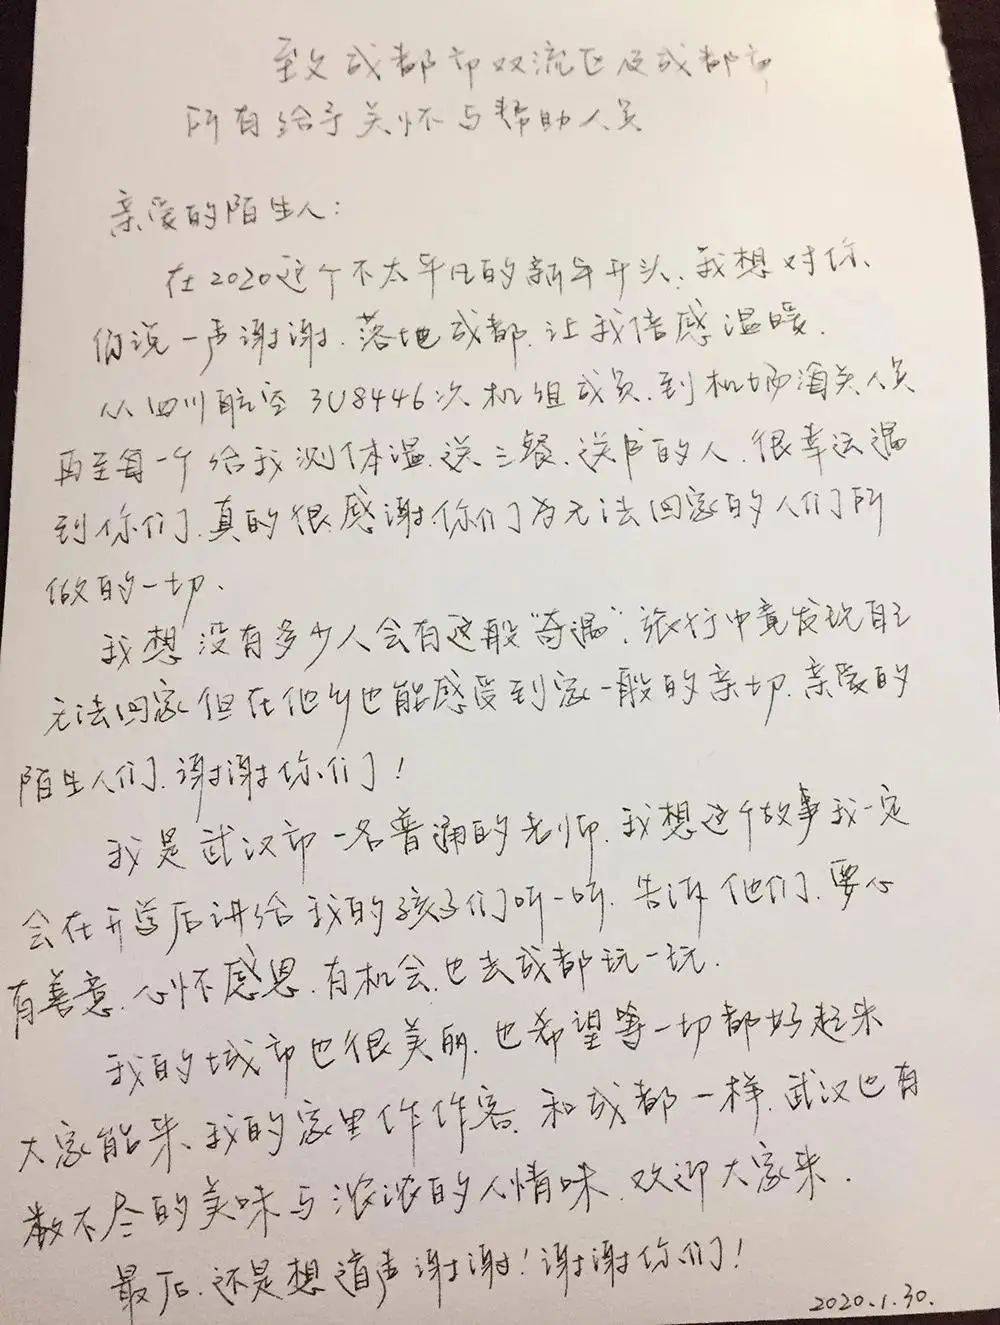 致成都市双流区及成都市
所有给予关怀与帮助人员
亲爱的陌生人：
在2020这个不太平凡的新年开头，我想对你
们说一声谢谢．落地成都，让我倍感温暖．
从四川航空3U8446次机组成员，到机场海关人员
再至每一个给我测体温、送三餐、送书的人，很幸运遇
到你们，真的很感谢你们为无法回家的人们所
做的一切．
我想没有多少人会有这般“奇遇”，旅行中竟发现自己
无法回家但在他乡也能感受到家一般的亲切，亲爱的
陌生人们，谢谢你们！
我是武汉市一名普通的老师，我想这个故事我一定
会在开学后讲给我的孩子们听一听，告诉他们，要心
有善意，心怀感恩，有机会也去成都玩一玩．
我的城市也很美丽，也希望等一切都好起来
大家能来我的家里作作客，和成都一样，武汉也有
数不尽的美味与浓浓的人情味，欢迎大家来．
最后，还是想道声谢谢！谢谢你们！
2020.1.30.